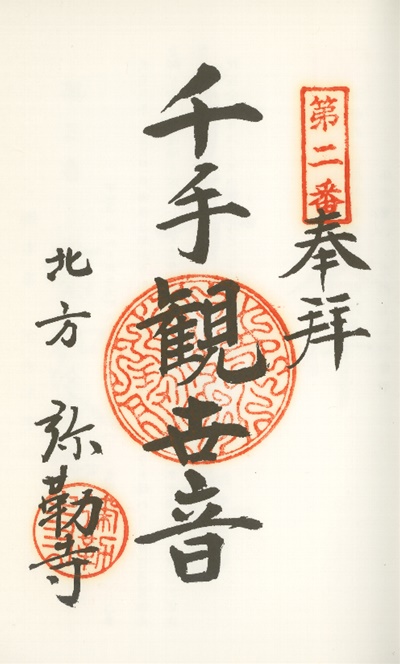 第二番
奉拝
千手観世音
北方 弥勒寺